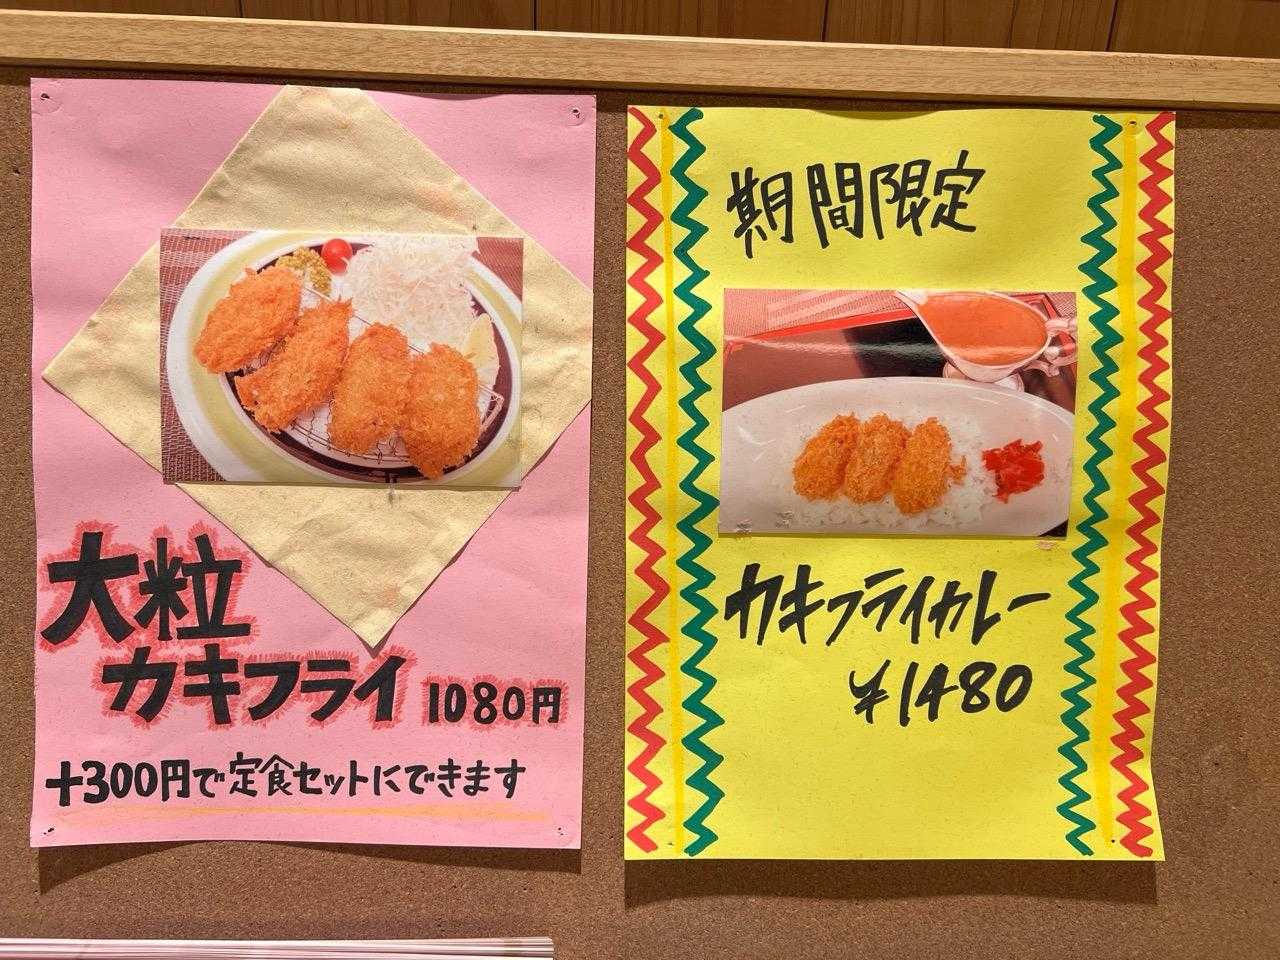 大粒
カキフライ 1080円
+300円で定食セットにできます
期間限定
カキフライカレー
¥1480